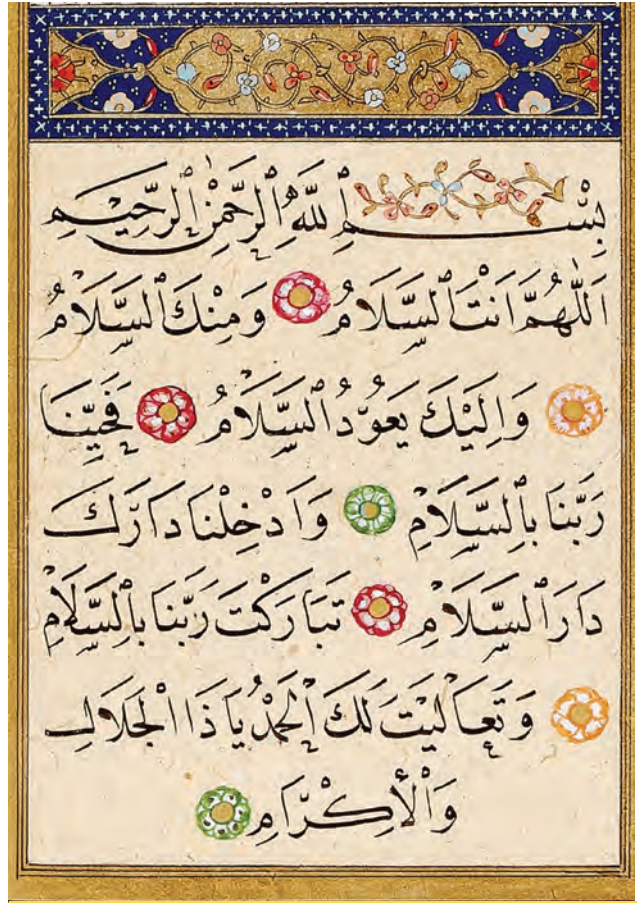 بِسْمِ اللهِ الرَّحْمٰنِ الرَّحِيمِ
اَللّٰهُمَّ اَنْتَ السَّلَامُ وَمِنْكَ السَّلَامُ
وَاِلَيْكَ يَعُوْدُ السَّلَامُ فَحَيِّنَا
رَبَّنَا بِالسَّلَامِ وَاَدْخِلْنَا دَارَكَ
دَارَ السَّلَامِ تَبَارَكْتَ رَبَّنَا بِالسَّلَامِ
وَتَعَالَيْتَ لَكَ الْحَمْدُ يَا ذَا الْجَلَالِ
وَالْاِكْرَامِ